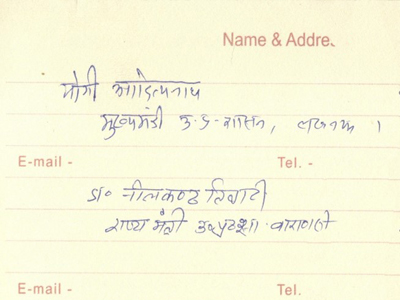 Name & Addre
योगी आदित्यनाथ
मुख्यमंत्री उ-प्र-शासन, लखनऊ ।
E-mail - Tel. -
डा० नीलकण्ठ तिवारी
राज्य मंत्री उ०प्र० वाराणसी
E-mail - Tel.